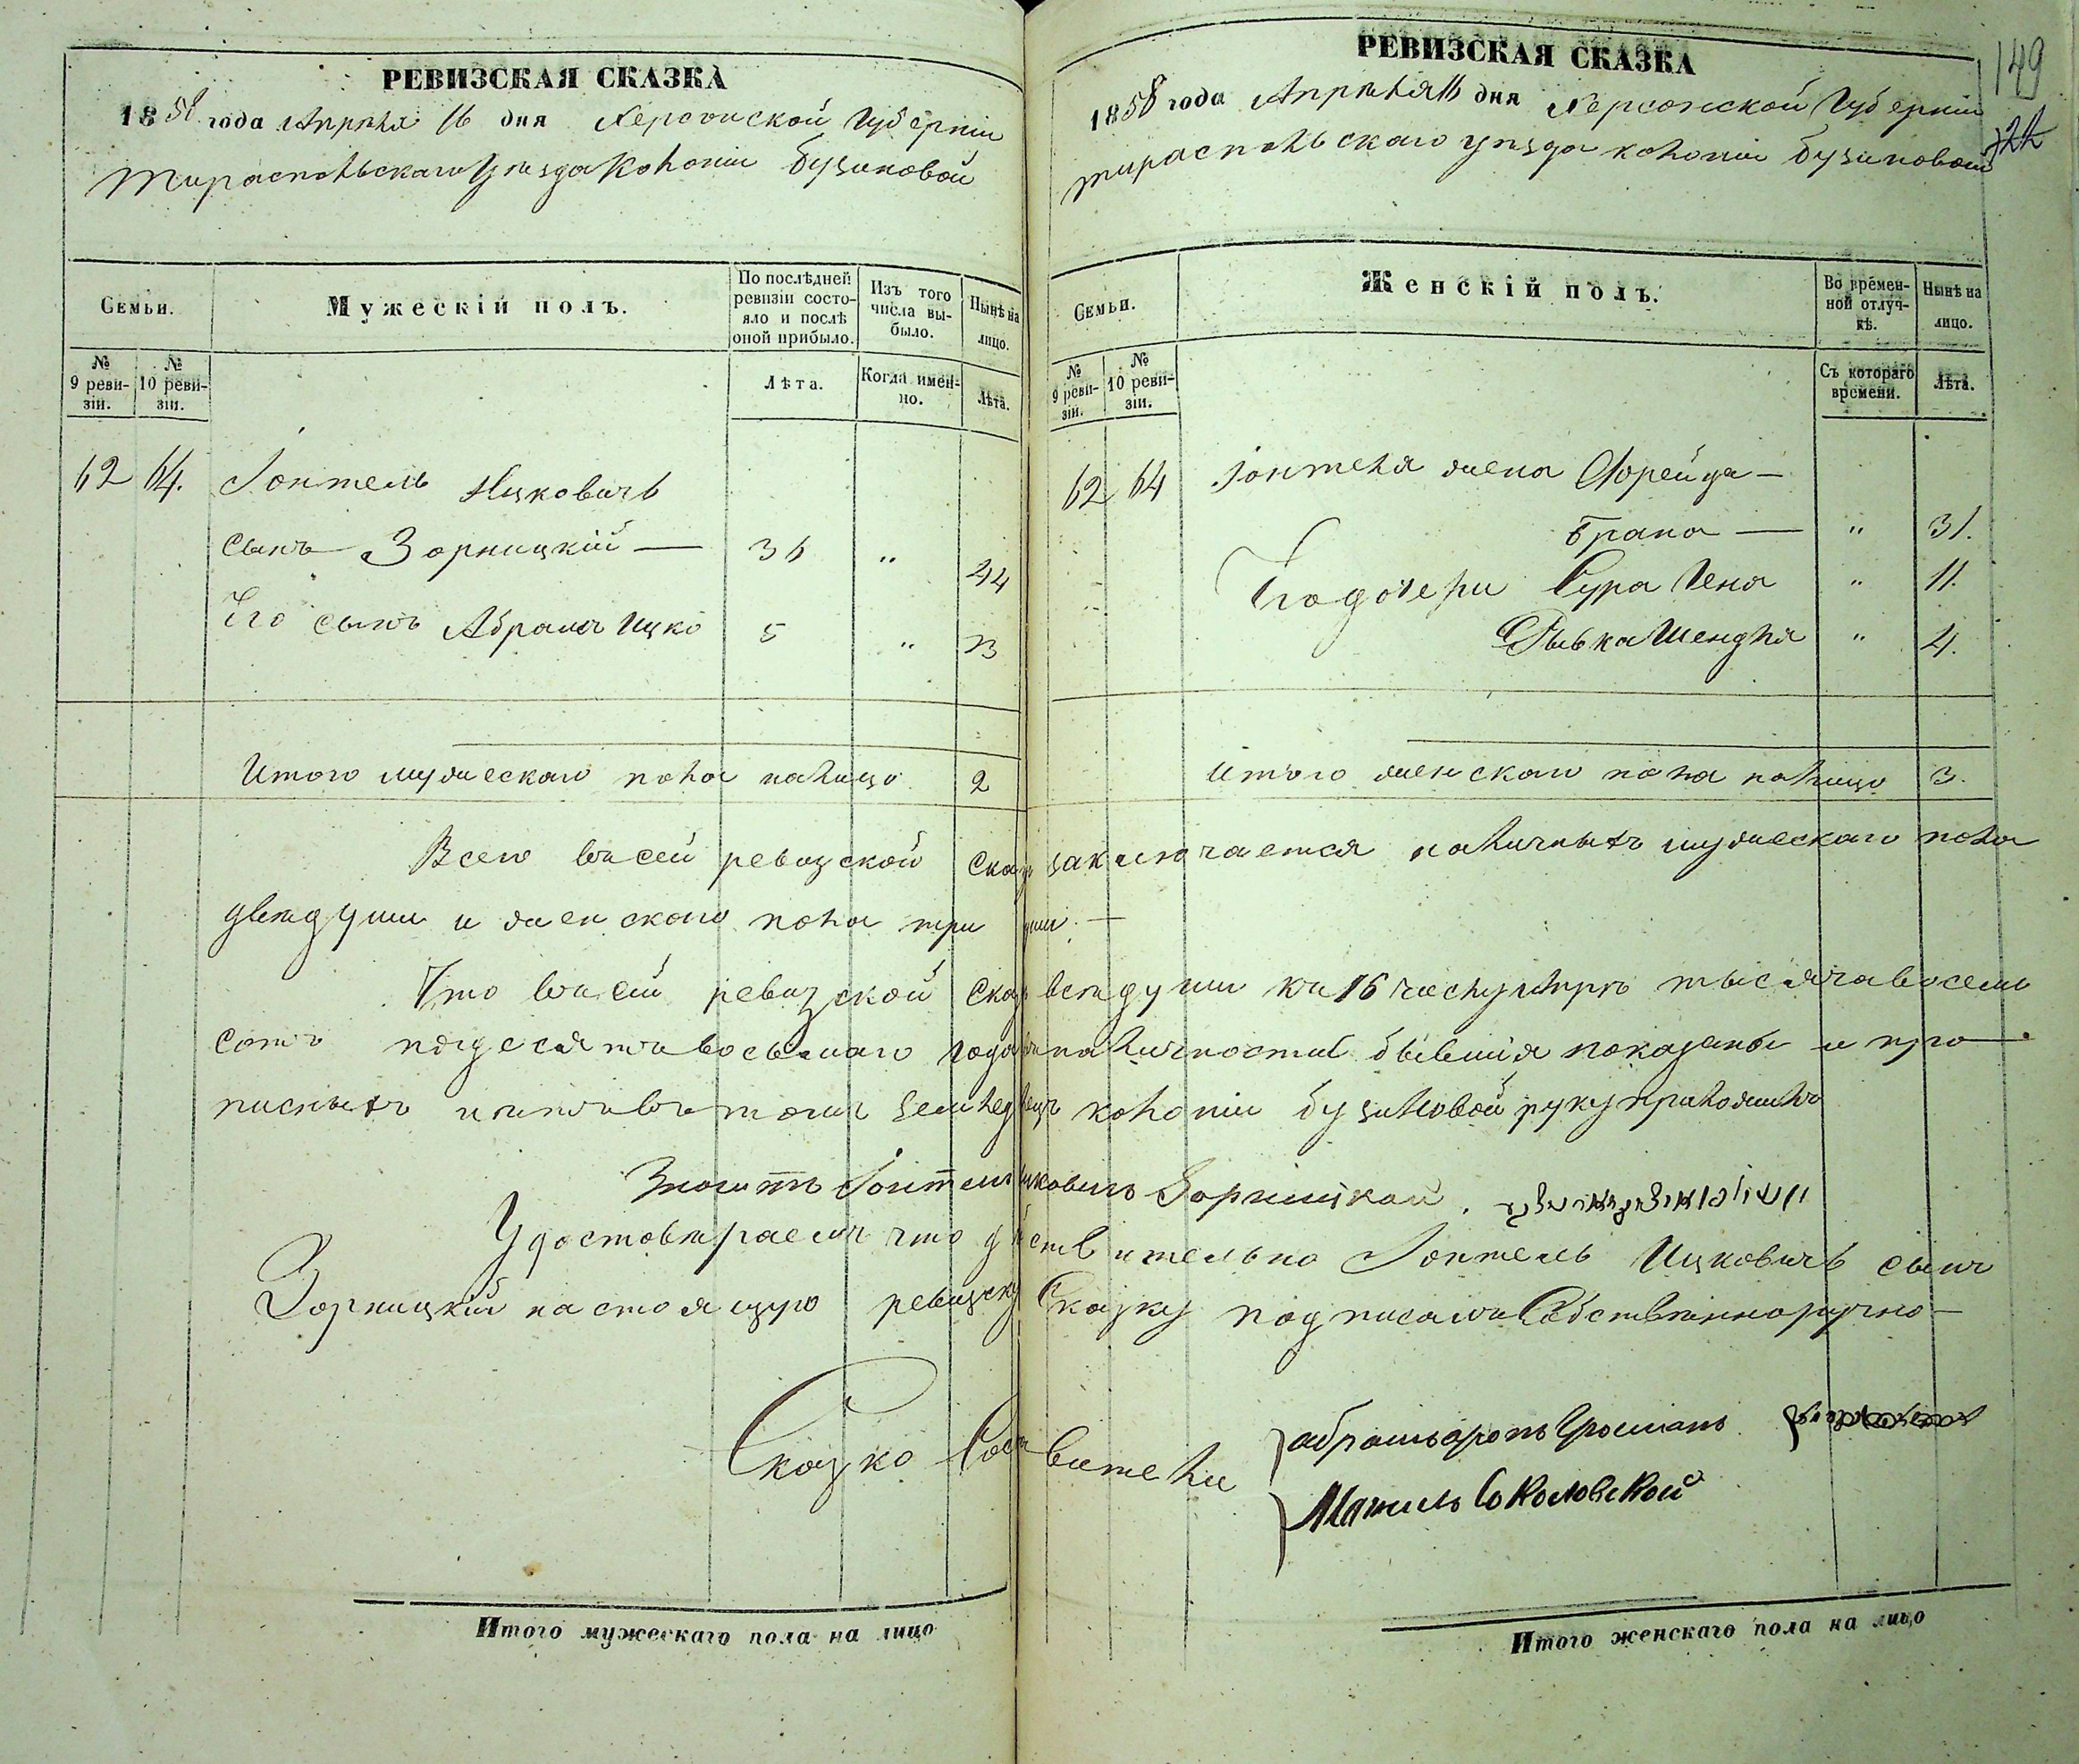 РЕВИЗСКАЯ СКАЗКА
1858 года Апрѣля 16 дня Херсонской Губерніи
Тираспольскаго Уѣзда Колоніи Бузиновой
Семьи.
Мужескій полъ.
По послѣдней ревизіи состояло и послѣ оной прибыло.
Изъ того числа выбыло.
Нынѣ на лицо.
№ 9 ревизіи.
№ 10 ревизіи.
Лѣта.
Когда именно.
Лѣта.
62 64. Іонтель Ицковичъ
сынъ Зорницкій — 36 " 44
Его сынъ Абрамъ Ицко 5 " 13
Итого мужескаго пола налицо 2
РЕВИЗСКАЯ СКАЗКА
149
1858 года Апрѣля 16 дня Херсонской Губерніи
тираспольскаго уѣзда колоніи бузиновой
Семьи.
Женскій полъ.
Во временной отлучкѣ.
Нынѣ на лицо.
№ 9 ревизіи.
№ 10 ревизіи.
Съ котораго времени.
Лѣта.
62 64 Іонтеля жена Фрейда —
Брана — " 31.
Его дочери Сура Гена " 11.
Рывка Шендля " 4.
Итого женскаго пола налицо 3.
Всего въ сей ревизской сказкѣ заключается наличныхъ мужескаго пола
двѣ души и женскаго пола три души. —
Что въ сей ревизской сказкѣ всѣ души къ 16 числу Апрѣля тысяча восемь
сотъ пядесятъ восьмаго года въ наличности бывшія показаны и про
писныхъ нѣтъ въ томъ земледѣлецъ колоніи бузиновой руку приложилъ
Іонтель Ицковичъ Зорницкой.
Удостовѣряемъ что дѣйствительно Іонтель Ицковичъ сынъ
Зорницкій настоящую ревизскую Сказку подписалъ Собственноручно —
Сказко Составители
абрамъ аронъ Гросманъ
Мотель Соколовской
Итого мужескаго пола на лицо
Итого женскаго пола на лицо